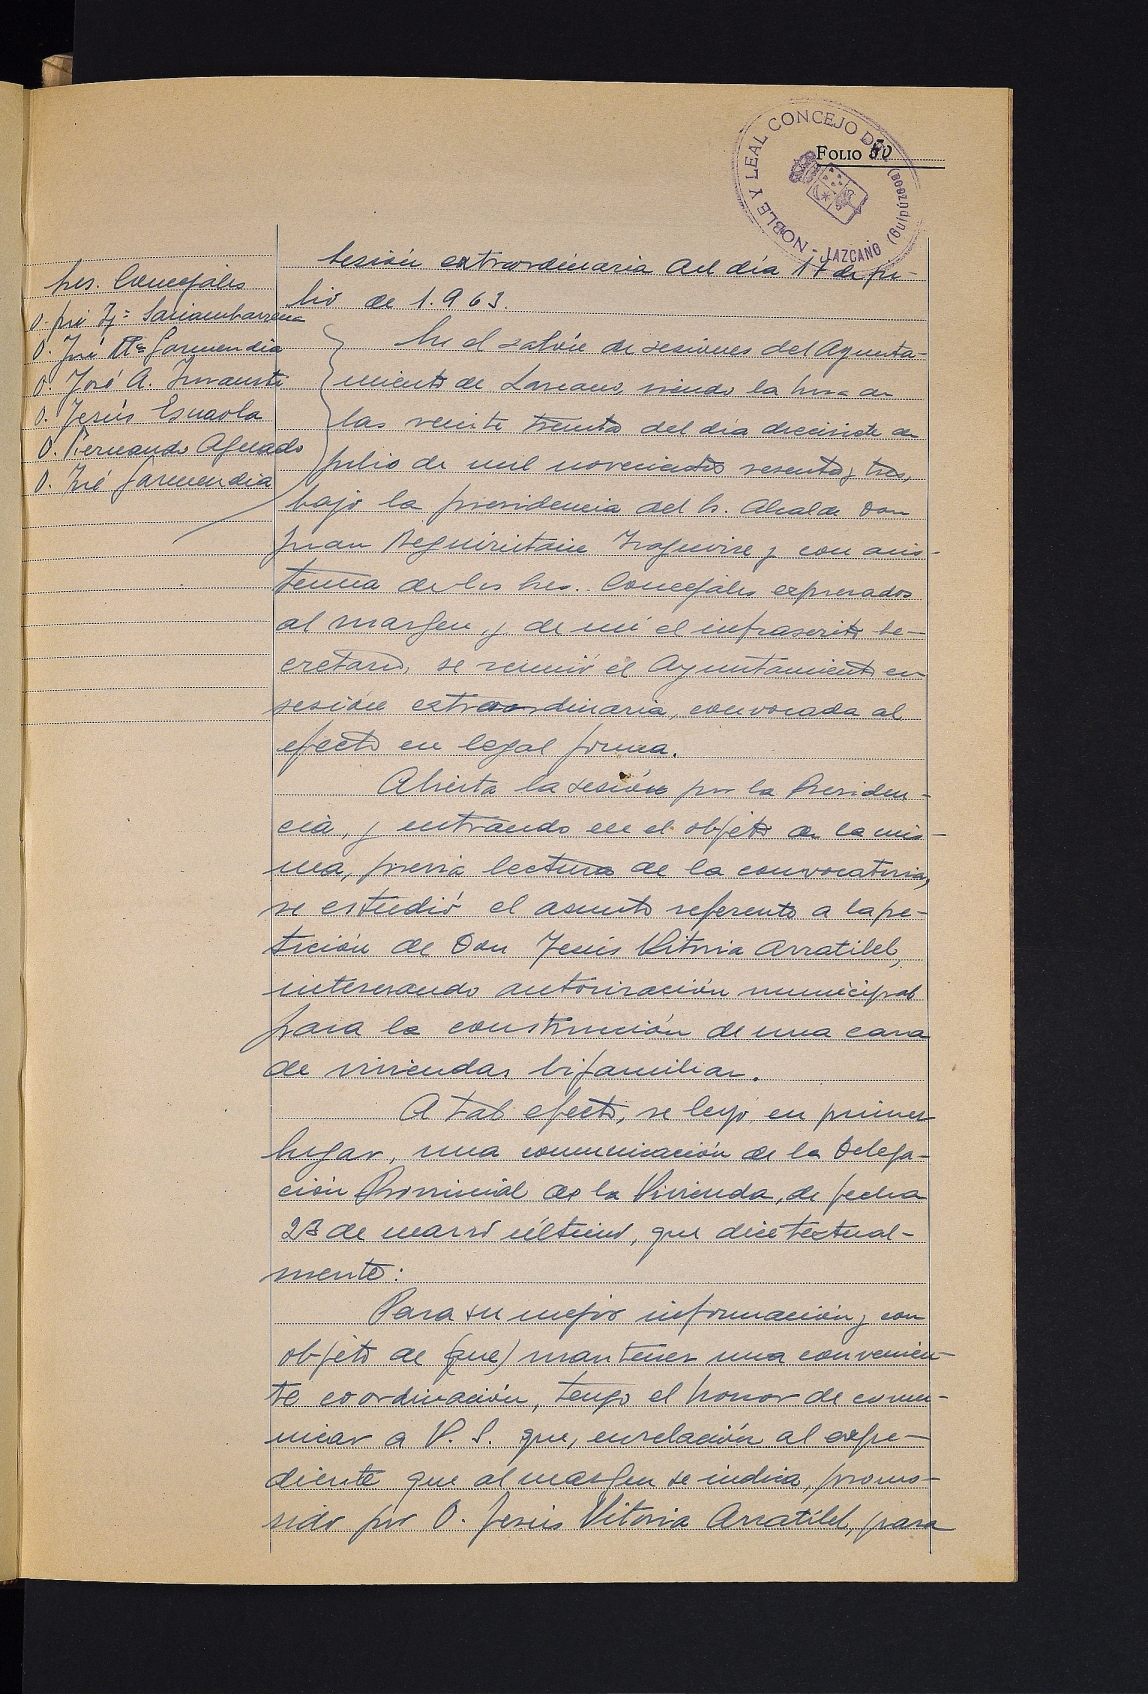 NOBLE Y LEAL CONCEJO DE LAZCANO (Guipúzcoa)
FOLIO 40
Sres. Concejales
D. José Mª Garmendia
D. José A. Insausti
D. Jesús Esnaola
D. Fernando Aguado
D. José Garmendia
Sesión extraordinaria del día 17 de ju-
lio de 1.963.
En el salón de sesiones del Ayunta-
miento de Lazcano, siendo la hora de
las veinte treinta del día diecisiete de
julio de mil novecientos sesenta y tres,
bajo la presidencia del Sr. Alcalde Don
Juan Beguiristain y con asis-
tencia de los Sres. Concejales expresados
al margen, y de mí el infrascrito Se-
cretario, se reunió el Ayuntamiento en
sesión extraordinaria, convocada al
efecto en legal forma.
Abierta la sesión por la Presiden-
cia, y entrando en el objeto de la mis-
ma, previa lectura de la convocatoria,
se estudió el asunto referente a la pe-
tición de Don Jesús Vitoria Arratibel,
interesando autorización municipal
para la construcción de una casa
de viviendas bifamiliar.
A tal efecto, se leyó en primer
lugar, una comunicación de la Delega-
ción Provincial de la Vivienda, de fecha
23 de marzo último, que dice textual-
mente:
Para su mejor información y con
objeto de (que) mantener una convenien-
te coordinación, tengo el honor de comu-
nicar a V. S. que, en relación al expe-
diente que al margen se indica, promo-
vido por D. Jesús Vitoria Arratibel, para